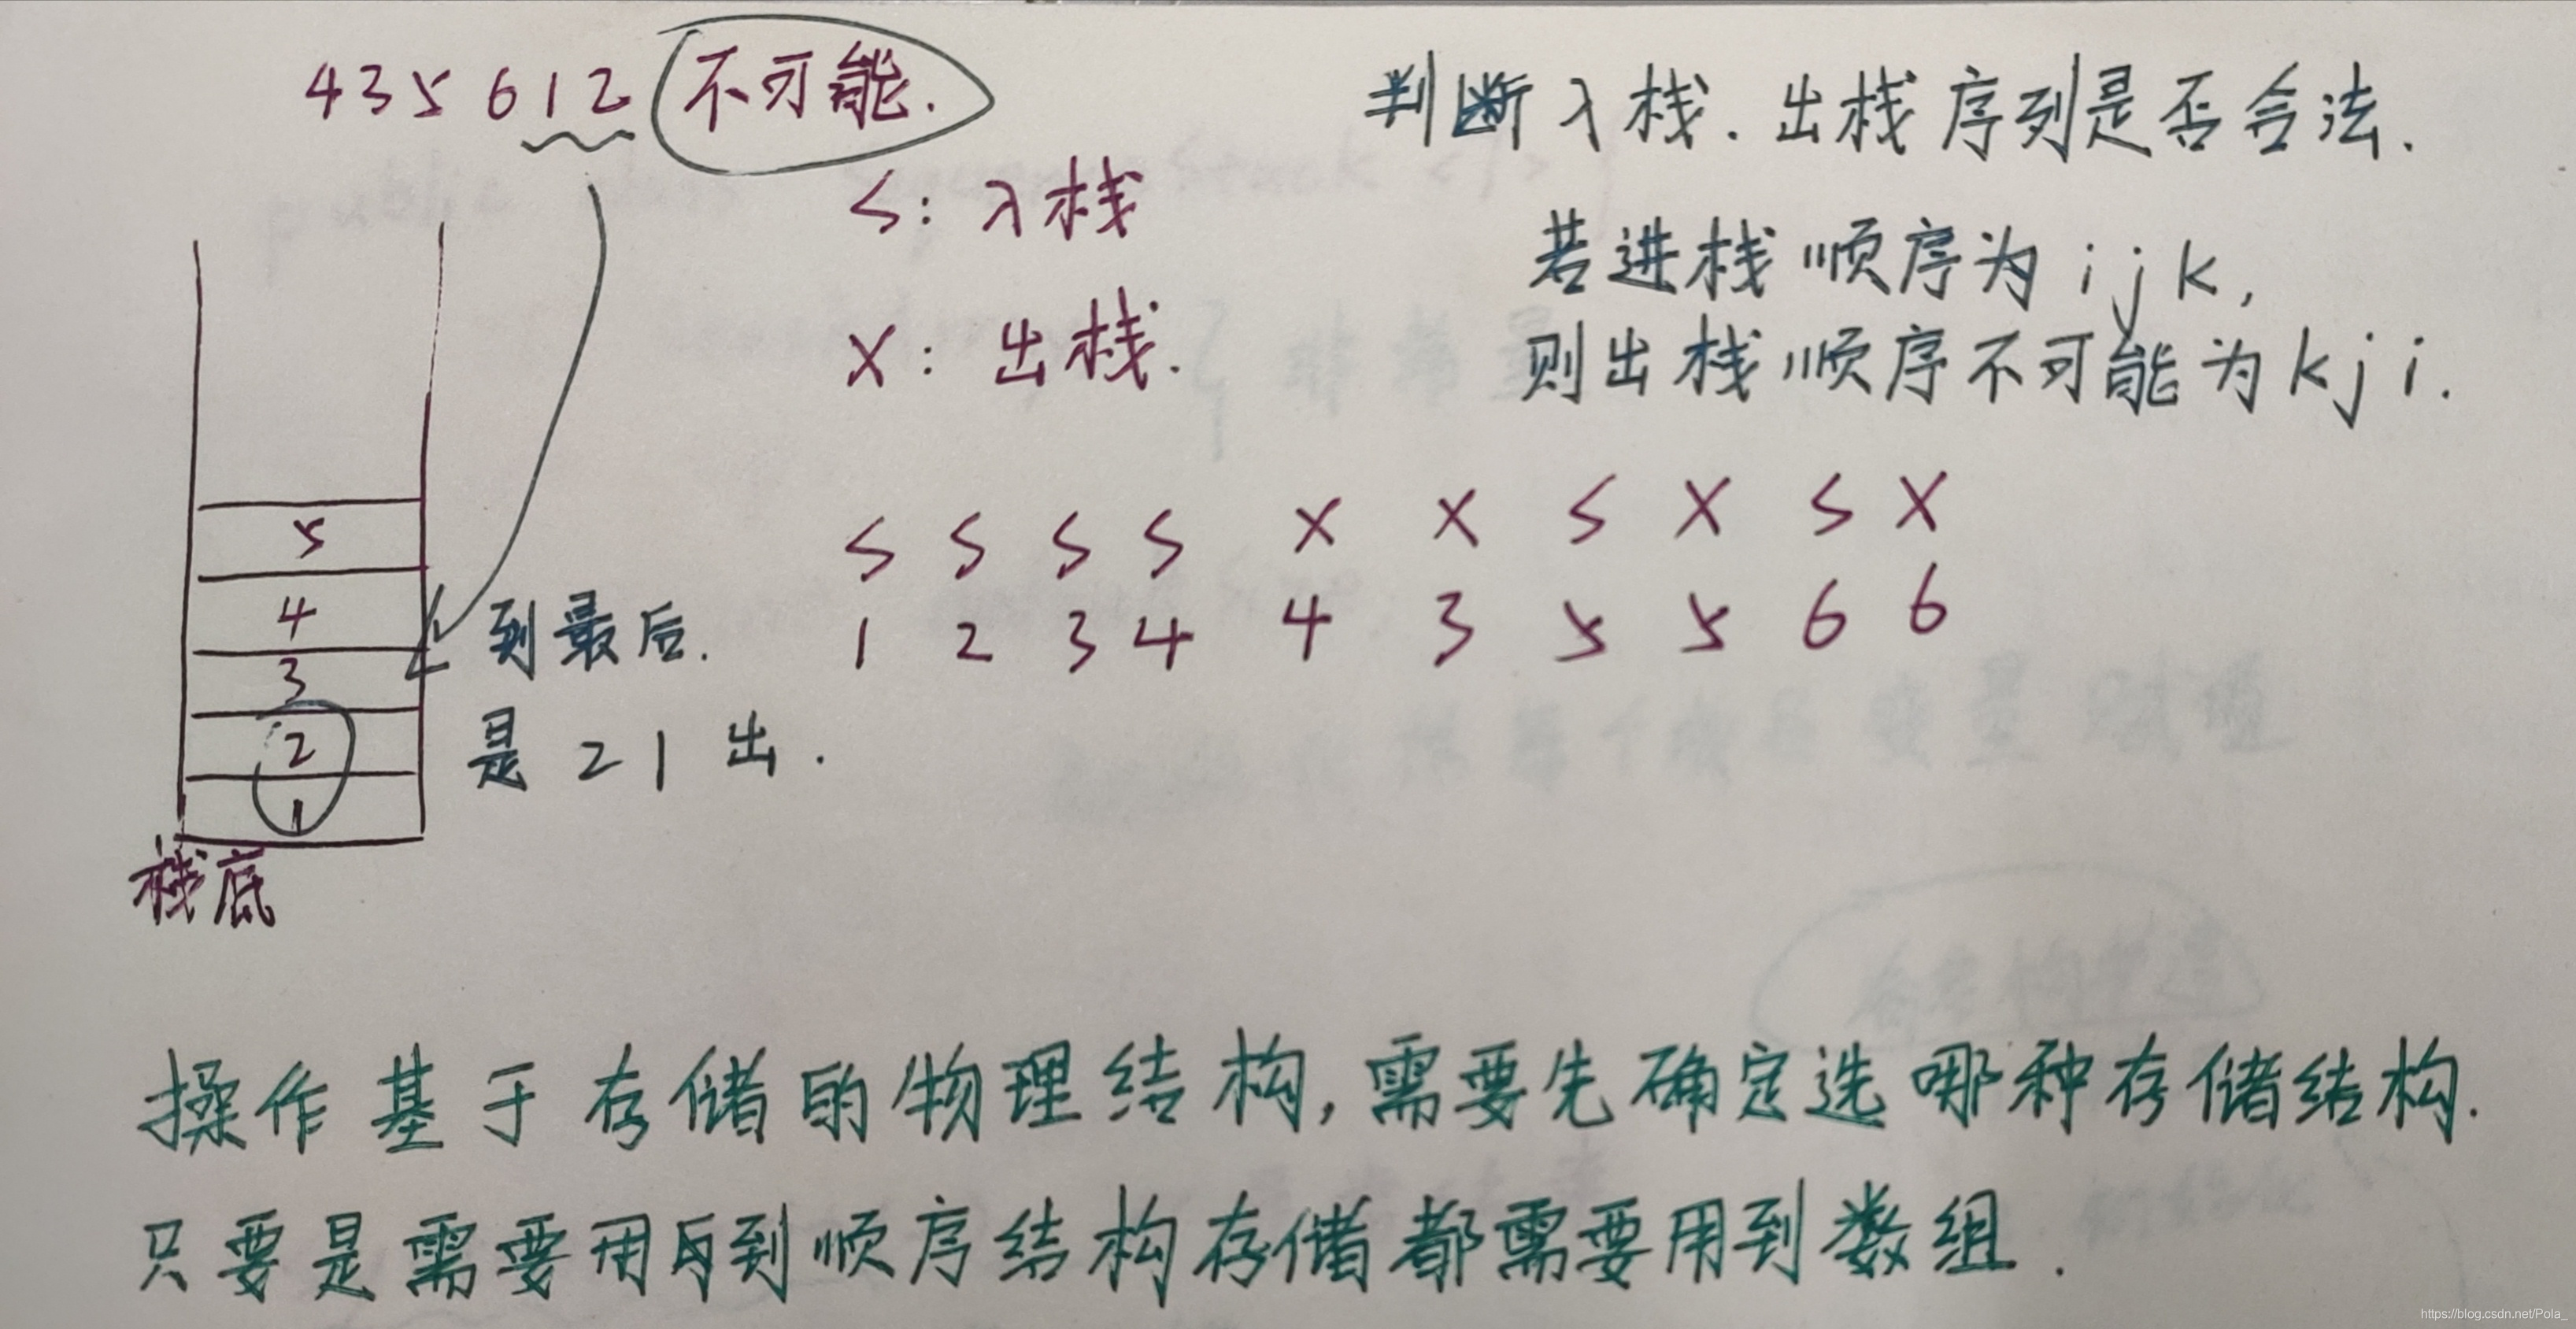 435612 不可能.
判断入栈.出栈序列是否合法.
S: 入栈
X: 出栈.
若进栈顺序为 i j k,
则出栈顺序不可能为 k j i.
S S S S X X S X S X
1 2 3 4 4 3 5 5 6 6
5
4
3
2
1
栈底
到最后.
是 2 1 出.
操作基于存储的物理结构,需要先确定选哪种存储结构.
只要是需要用到顺序结构存储都需要用到数组.
https://blog.csdn.net/Pola_